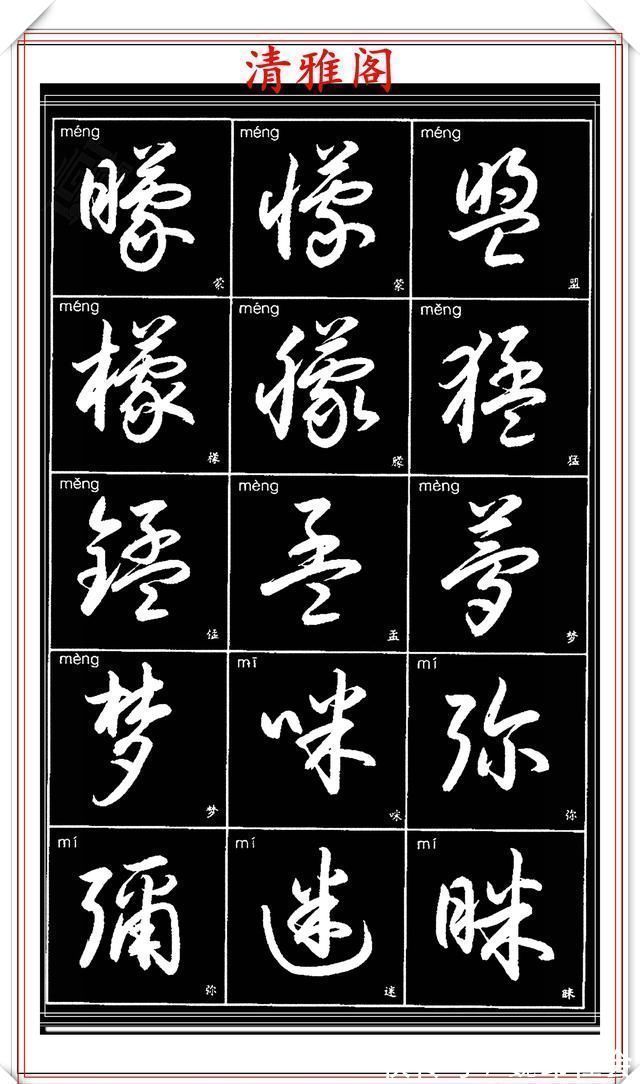 清雅阁
méng méng méng
矇 懞 盟
蒙 蒙 盟
méng méng měng
檬 朦 猛
檬 朦 猛
měng mèng mèng
錳 孟 夢
锰 孟 梦
mèng mī mí
梦 咪 弥
梦 咪 弥
mí mí mí
彌 迷 眯
弥 迷 眯